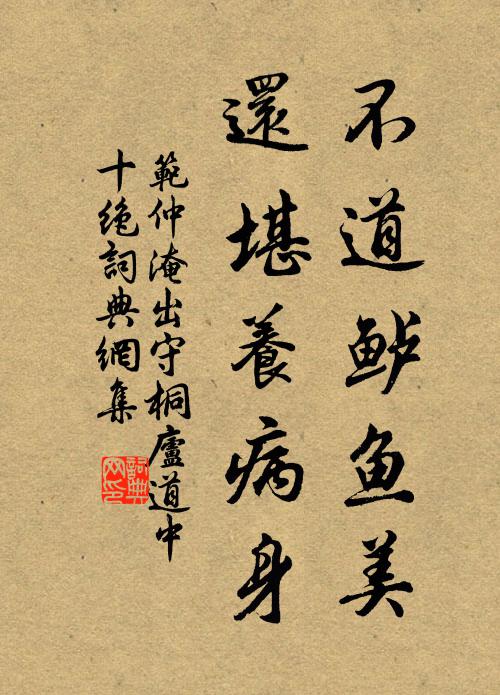 不道鲈鱼美
還堪養病身
範仲淹出守桐廬道中
十绝詞典網集
詞典网印